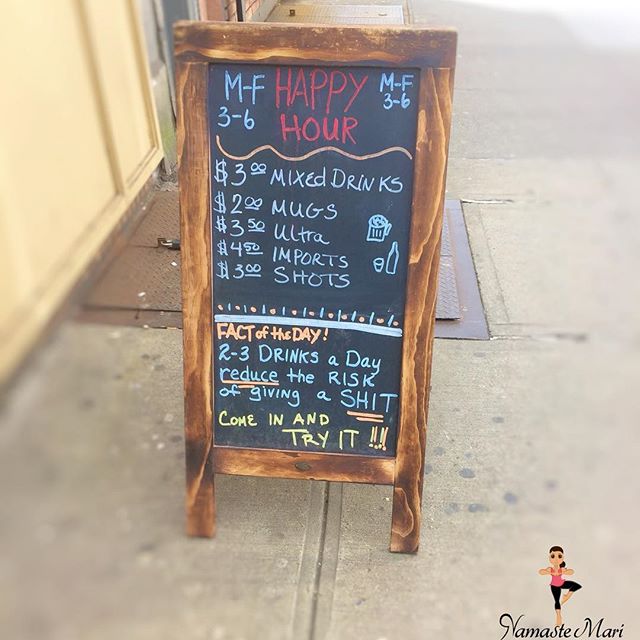 M-F HAPPY M-F
3-6 HOUR 3-6
$3.00 MIXED DRINKS
$2.00 MUGS
$3.50 ULtra
$4.50 IMPORTS
$3.00 SHOTS
FACT of the DAY!
2-3 DRINKS a Day
reduce the RISK
of giving a SHIT
COME IN AND
TRY IT !!!
Namaste Mari